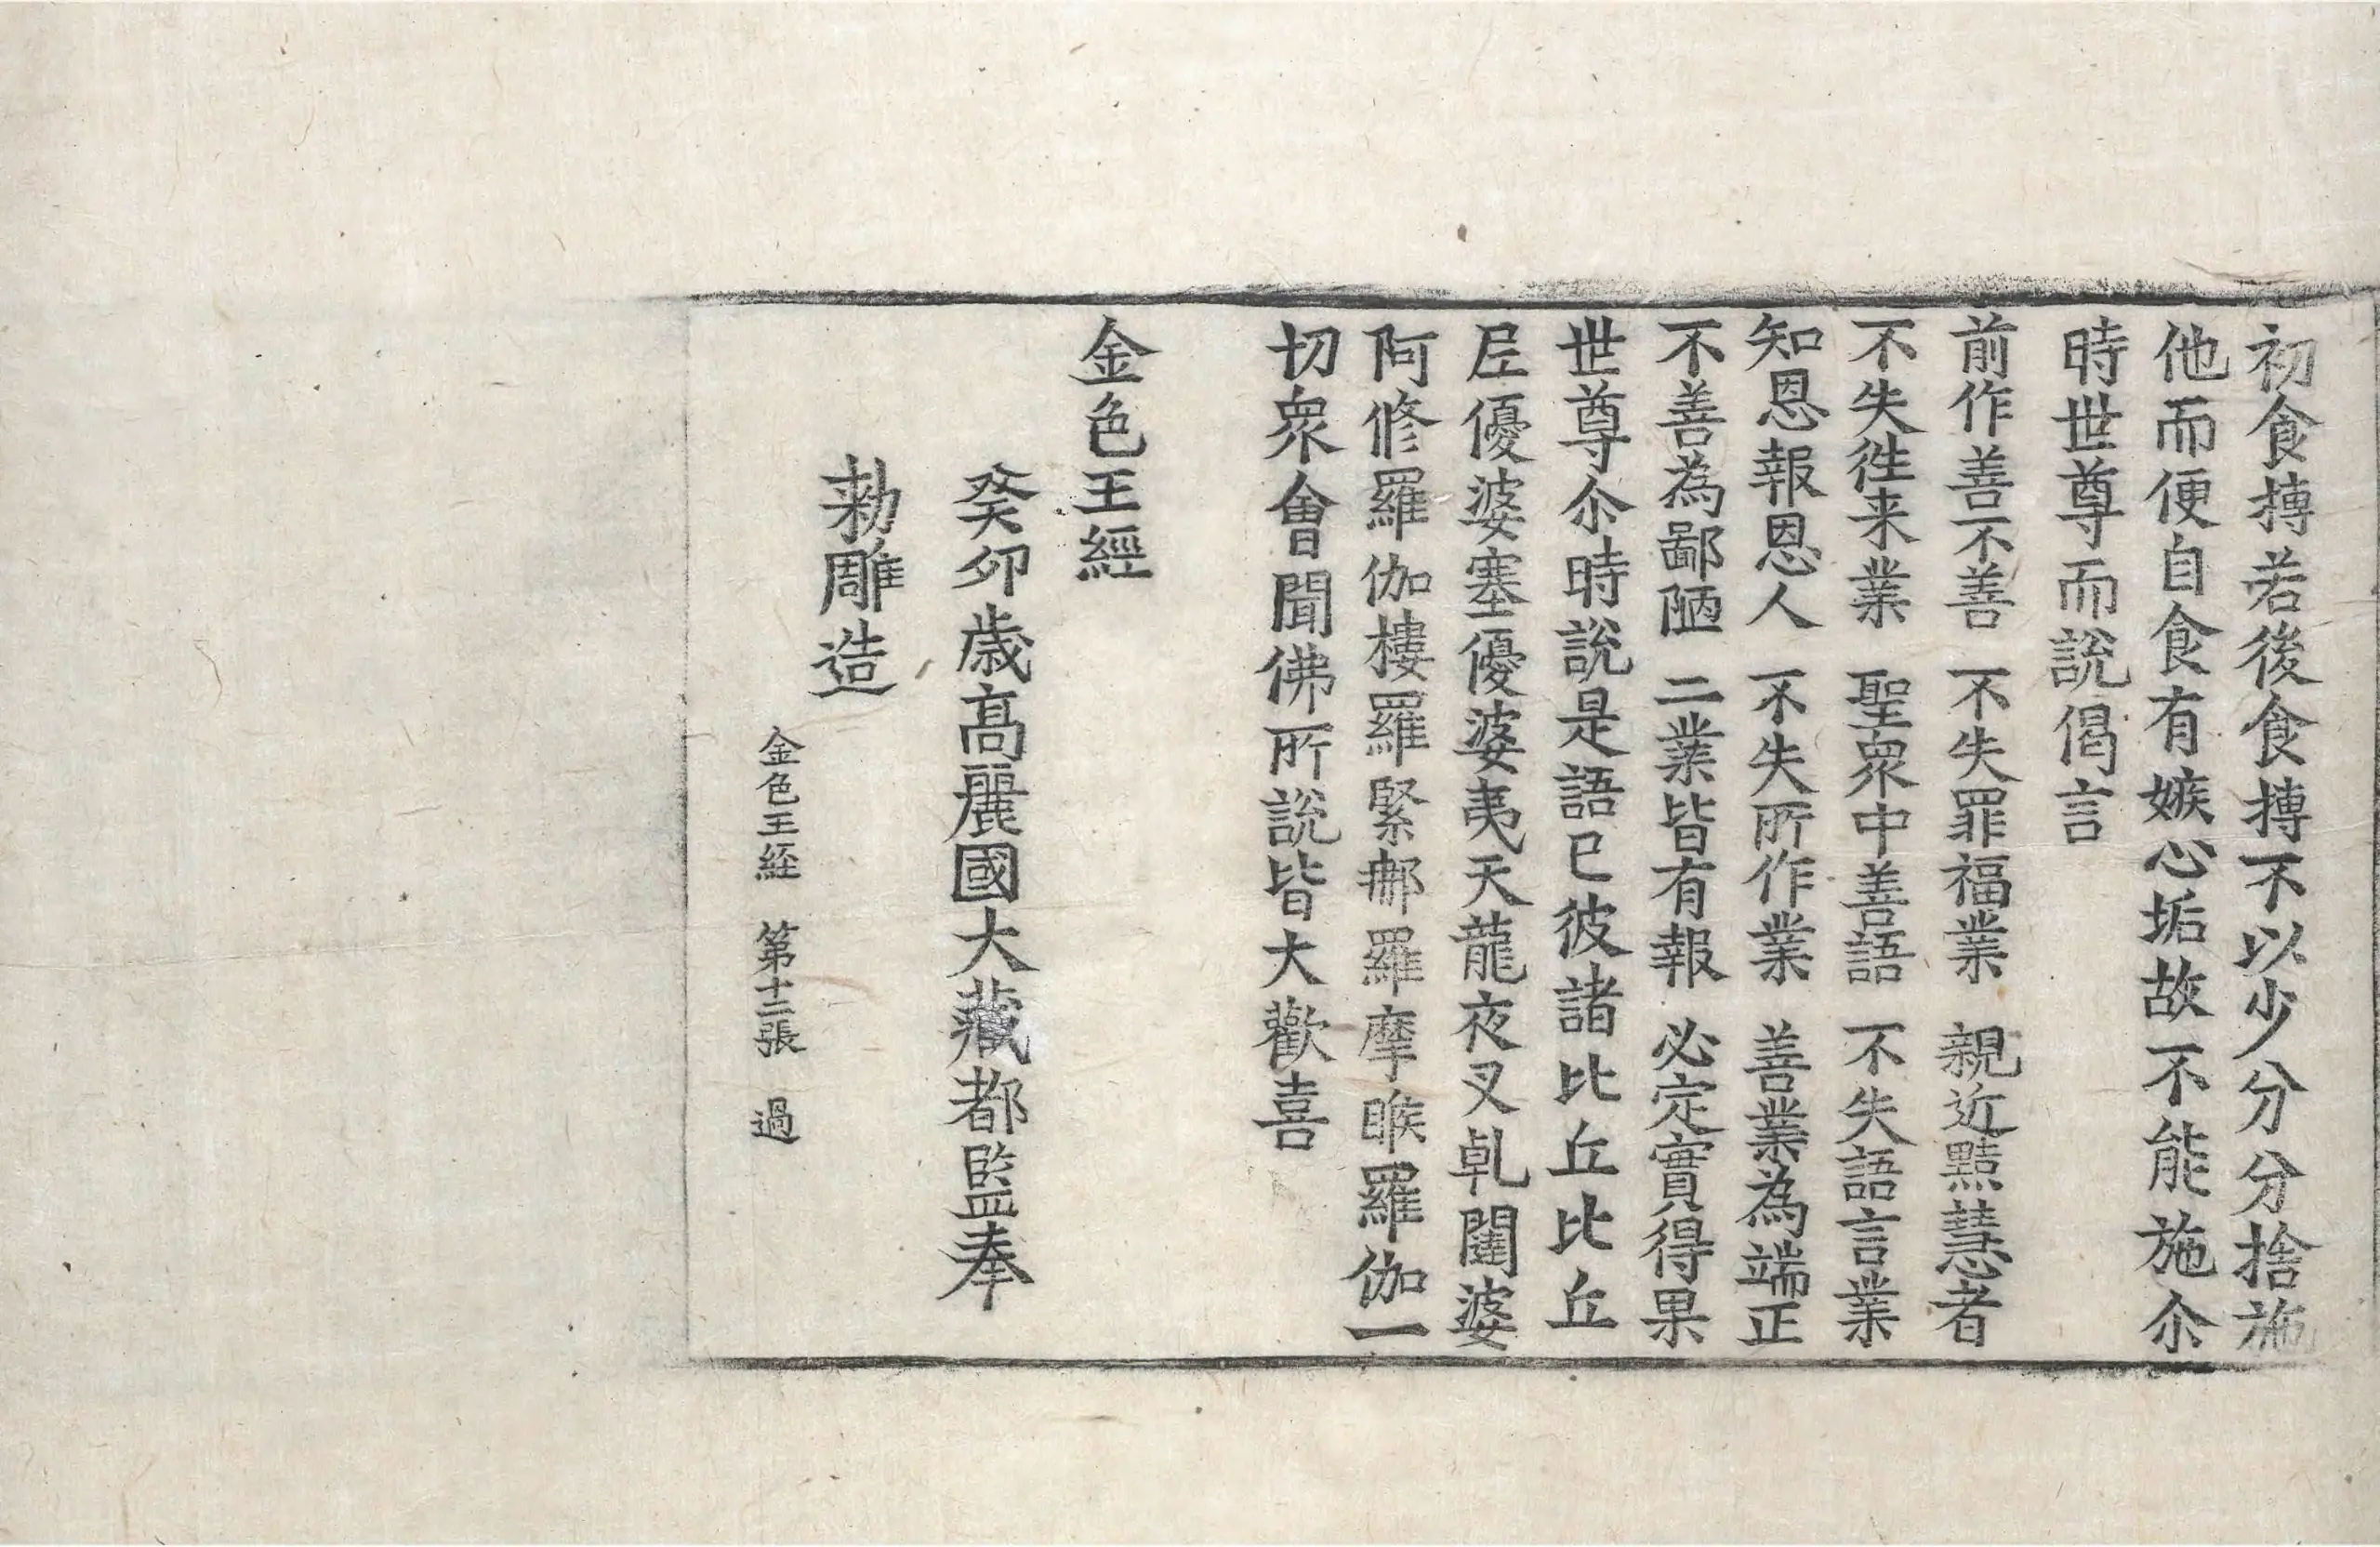 初食摶若後食摶不以少分分捨施
他而便自食有嫉心垢故不能施尒
時世尊而說偈言
前作善不善 不失罪福業 親近黠慧者
不失徃来業 聖衆中善語 不失語言業
知恩報恩人 不失所作業 善業為端正
不善為鄙陋 二業皆有報 必定實得果
世尊尒時說是語已彼諸比丘比丘
尼優婆塞優婆夷天龍夜叉乹闥婆
阿修羅伽樓羅緊那羅摩睺羅伽一
切衆會聞佛所說皆大歡喜
金色王經
癸卯歲高麗國大藏都監奉
勑雕造
金色王経 第十二張 過